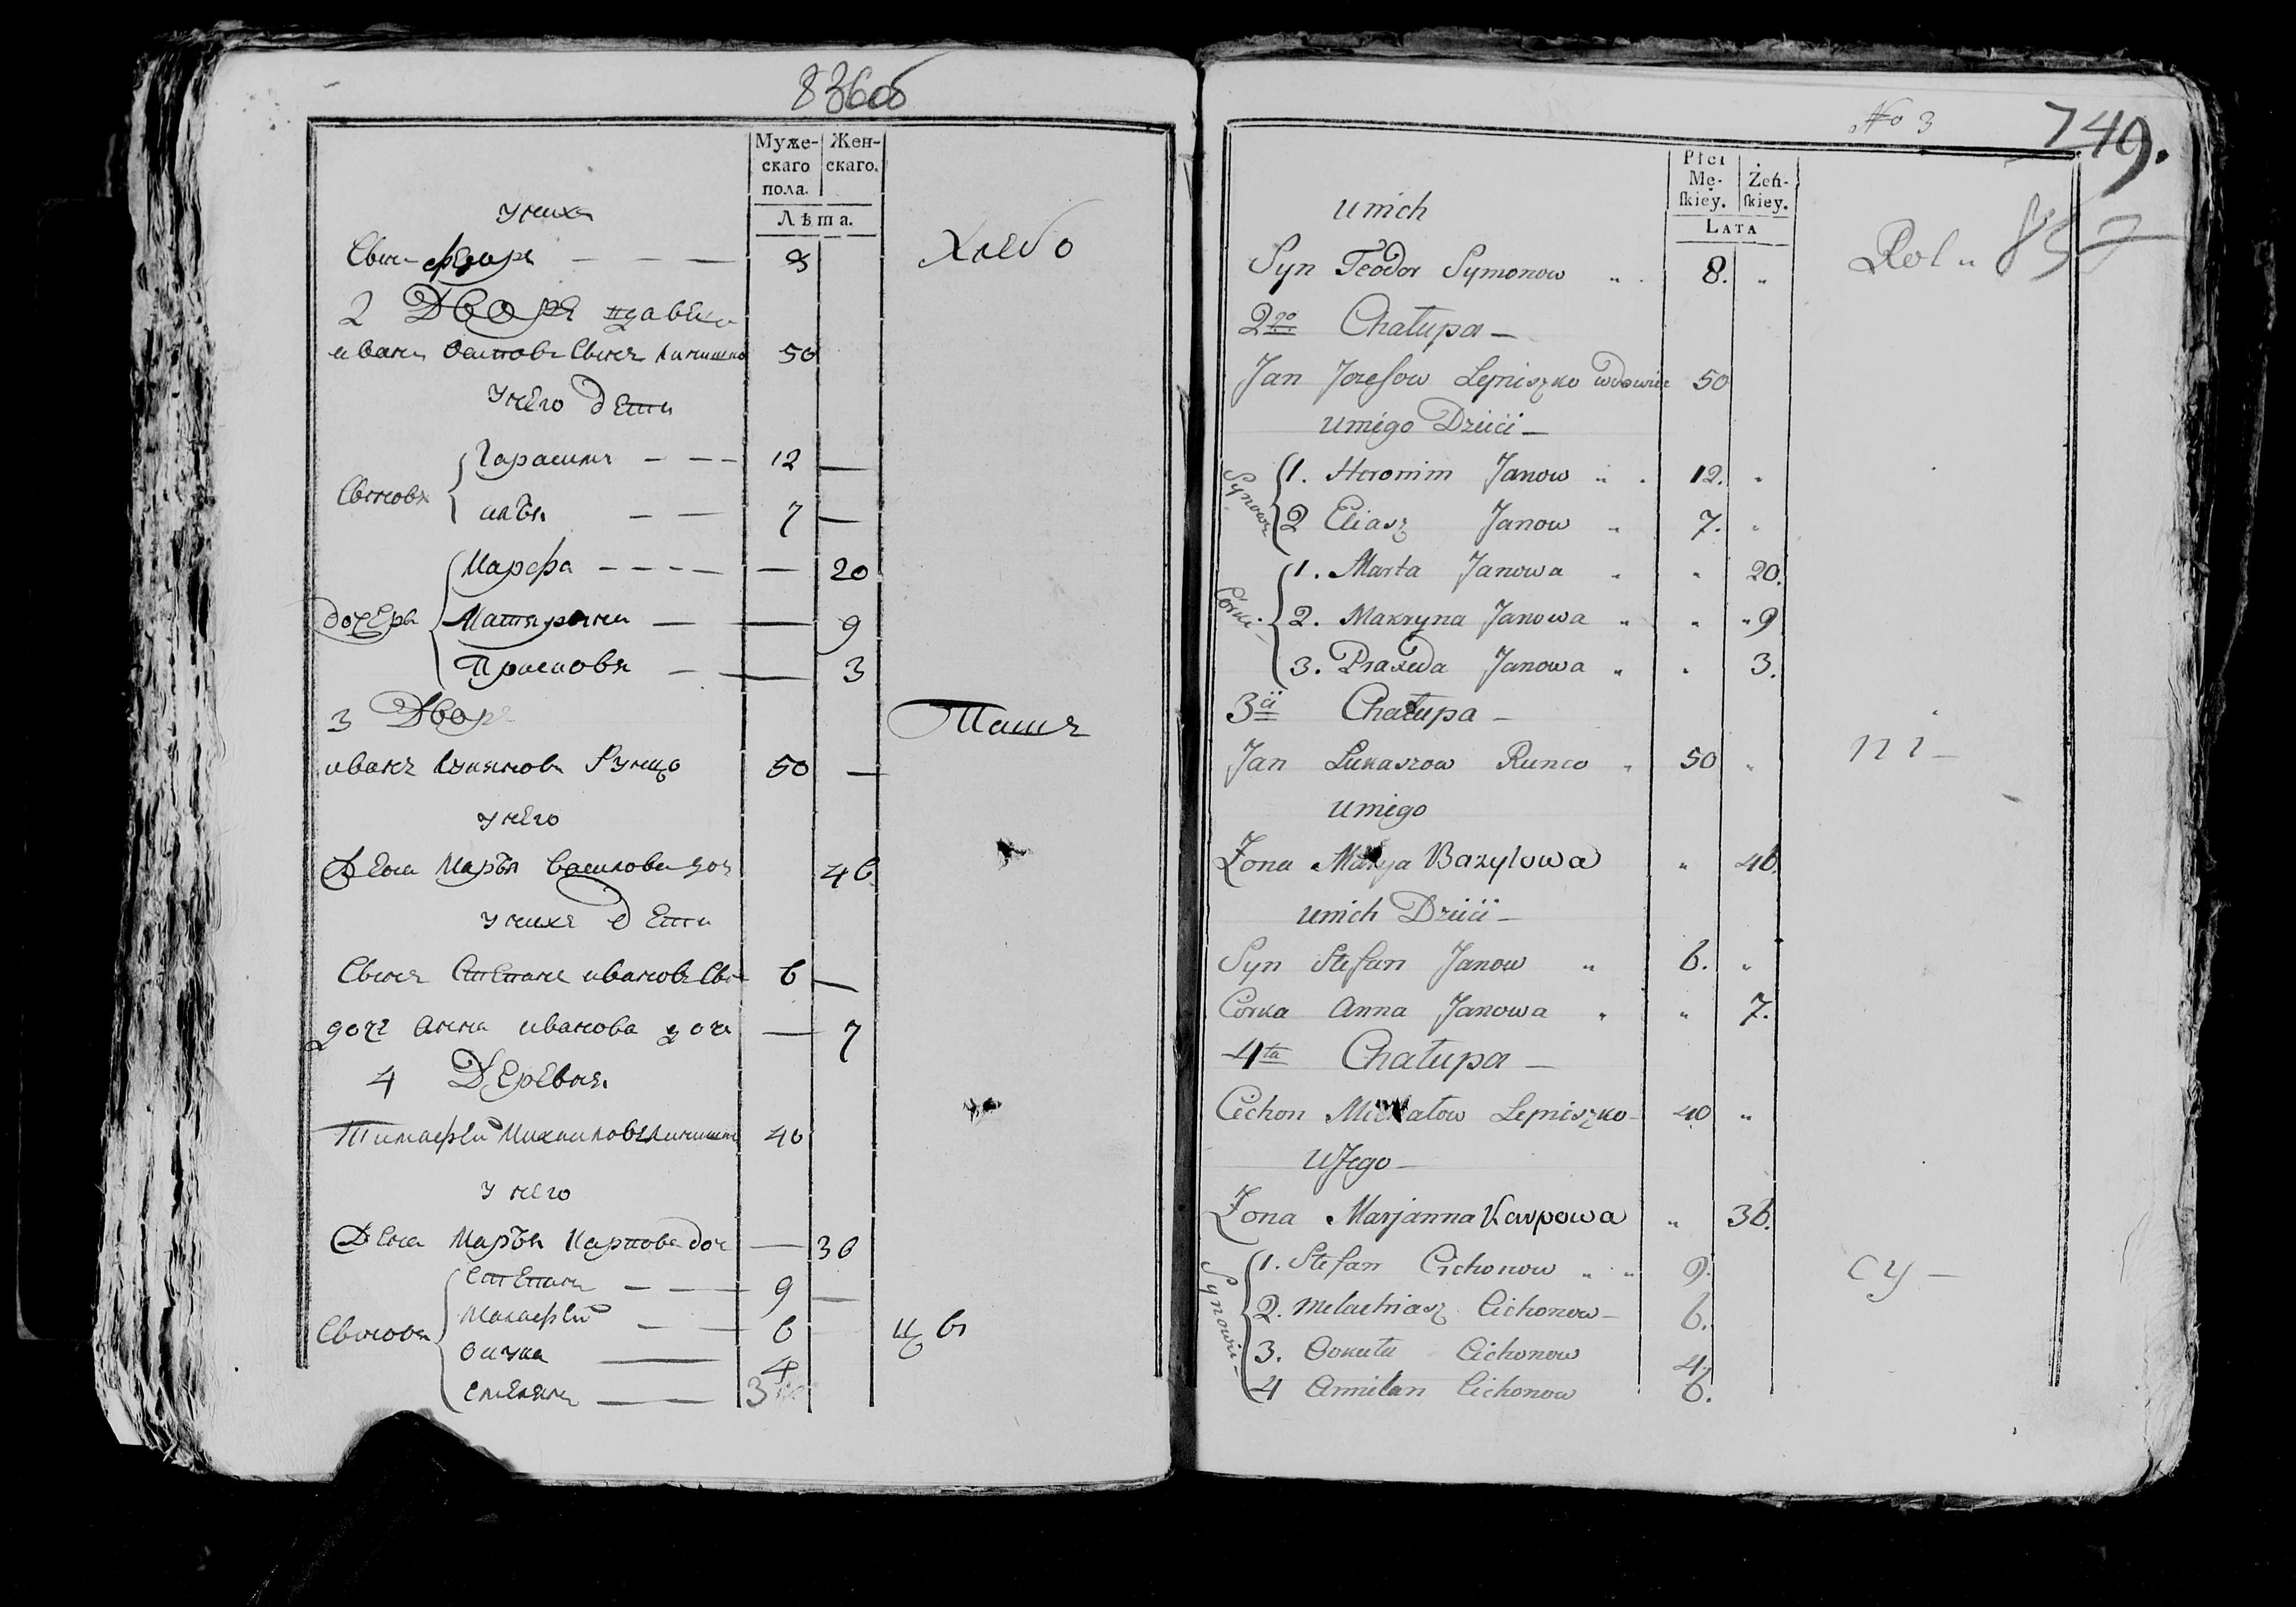 836об
Муже-
скаго
пола.
Жен-
скаго.
Лѣта.
у нихъ
Сынъ Федоръ — — — 8
Хлебо
2 Дворъ вдавецъ
иванъ Осиповъ Сынъ 50
у него дети
Сыновя
Гарасимъ — — — 12 —
илья — — 7 —
дочери
Марфа — — — — — 20
Матырына — — 9
Прасковя — — 3
3 Дворъ
Пашъ
иванъ Лукяновъ Рунцо 50 —
у него
Жена Марья Василова доч 46
у нихъ дети
Сынъ Степанъ ивановъ Сы 6 —
дочь Анна иванова доч — 7
4 Деревня
Тимафей Михаиловъ 40
у него
Жена Марья Карпова доч — 36
Сыновя
Степанъ — — 9 —
Малафей — — 6
цы
— 4
Емелянъ — 3
No 3
749.
857
Płci
Mę-
ſkiey.
Żeń-
ſkiey.
Lata
u nich
Syn Teodor Symonow „ . 8. „
Rol „
2go Chałupa —
Jan Jozefow Lepiszko wdowiec 50
u niego Dzieci —
Synowie
1. Heronim Janow „ . 12. „
2 Eliasz Janow „ 7. „
Corki
1. Marta Janowa „ „ 20.
2. Makryna Janowa „ „ „ 9
3. Praxeda Janowa „ „ 3.
3ci Chałupa —
Jan Lukaszow Runco „ 50 „
ni —
u niego
Zona Marya Bazylowa „ 46.
u nich Dzieci —
Syn Stefan Janow „ 6. „
Corka Anna Janowa „ „ 7.
4ta Chałupa —
Cichon Michałow Lepiszko — 40 „
u Jego —
Zona Marjanna Karpowa „ 36.
Synowie
1. Stefan Cichonow „ „ 9.
cy —
2. Melachiasz Cichonow — 6.
3. Cichonow 4.
4 Cichonow 6.